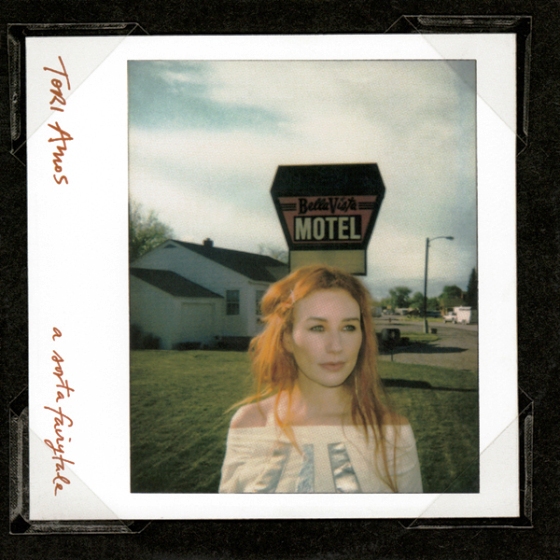 TORI AMOS
a sorta fairytale
Bella Vista
MOTEL